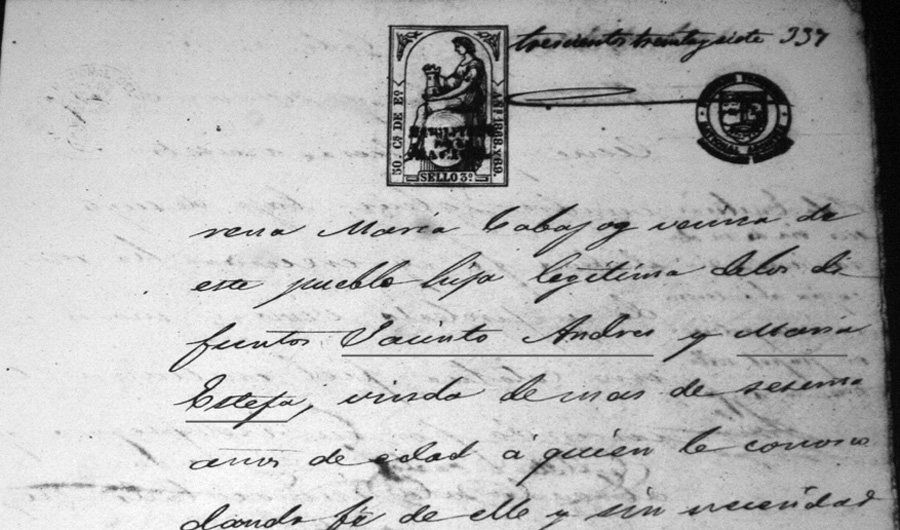 trescientos treintaysiete 337
50. Cs DE Eo.
AÑs 1868 Y 69.
HABILITADO
POR LA
NACION.
SELLO 3º.
NACIONAL
rena María Cabajog vecina de
este pueblo hija legítima delos di
funtos Jacinto Andres y Maria
Estefa, viuda de mas de sesenta
años de edad á quien le conosco
dando fé de ello y sin necesidad